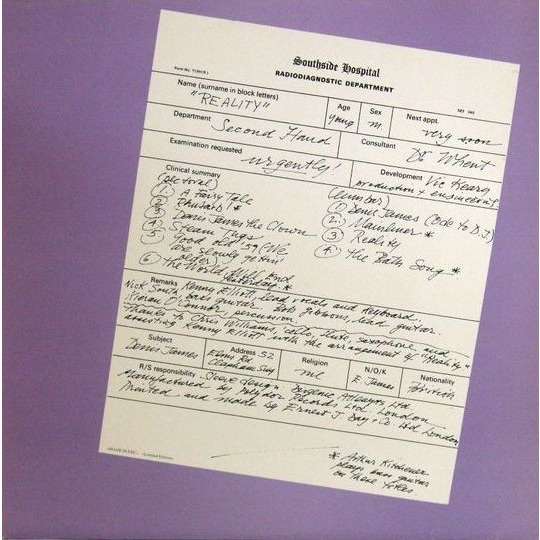 Southside Hospital
RADIODIAGNOSTIC DEPARTMENT
Name (surname in block letters)
"REALITY"
Age
young
Sex
m.
Next appt.
very soon
Department
Second Hand
Consultant
Dr Wheat
Examination requested
urgently!
Development Vic Keary
production + engineering
Clinical summary
(pictorial)
① A Fairy Tale
② Rhubarb! *
③ Denis James the Clown
④ Steam Tugs
⑤ Good old '59 (We
are slowly gettin'
older)
⑥ The World Will End
Yesterday *
① Denis James (Ode to D.J)
② Mainliner *
③ Reality
④ The Bath Song *
Remarks Kenny Elliott, lead vocals and keyboard,
Nick South, bass guitar. Bob Gibbons, lead guitar.
Kieran O'Connor, percussion
Thanks to Chris Williams, cello, flute, saxophone and
assisting Kenny Elliott with the arrangement of "Reality"
Subject
Denis James
Address 52
Elms Rd
Clapham
Religion
N/O/K
E James
Nationality
British
R/S responsibility
Manufactured by Polydor Records Ltd London
Printed and made by Ernest J Day + Co Ltd London
* Arthur Kitchener
plays bass guitar
on these titles